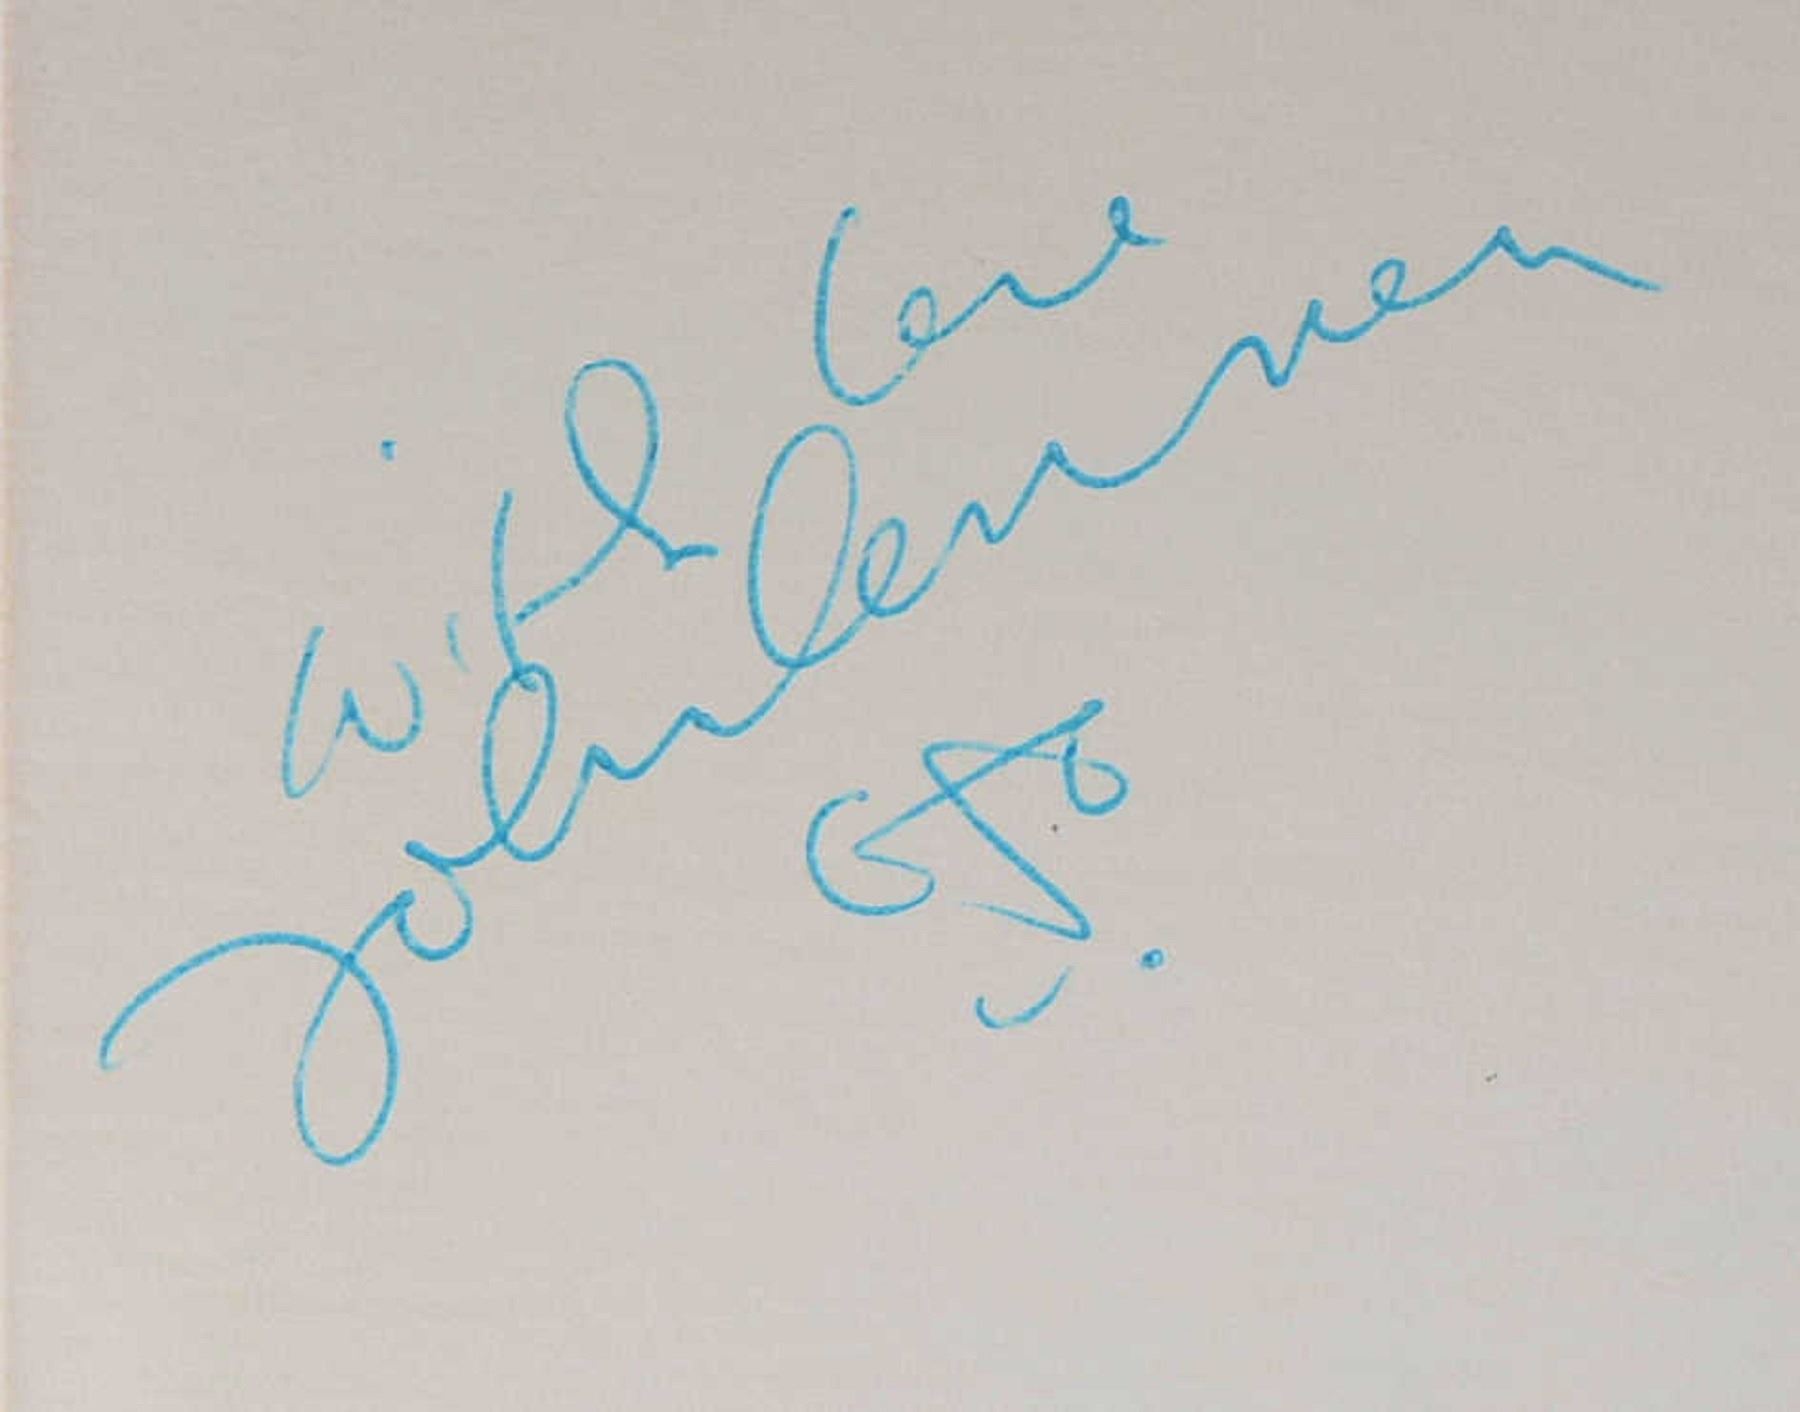 With love
John Lennon